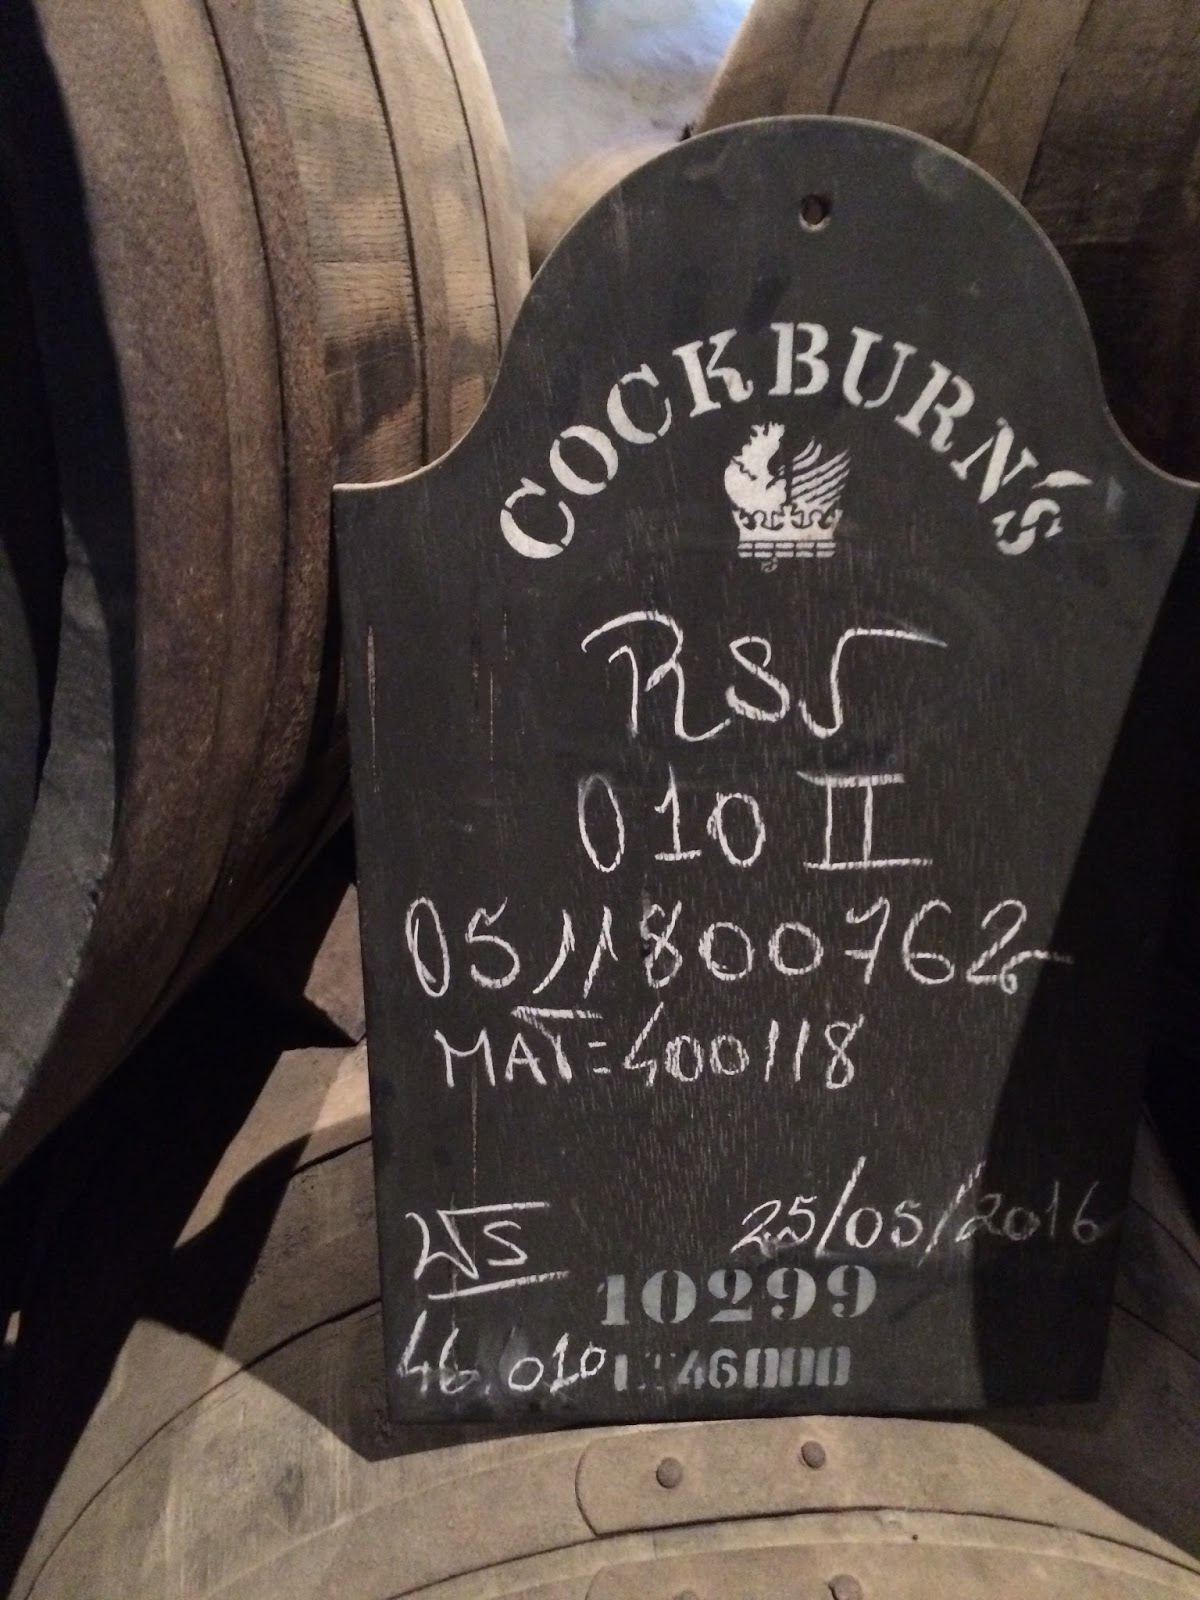 COCKBURN'S
RST
010 II
0511800762
MAT=400118
WS 25/05/2016
10299
46.010 LT 46000